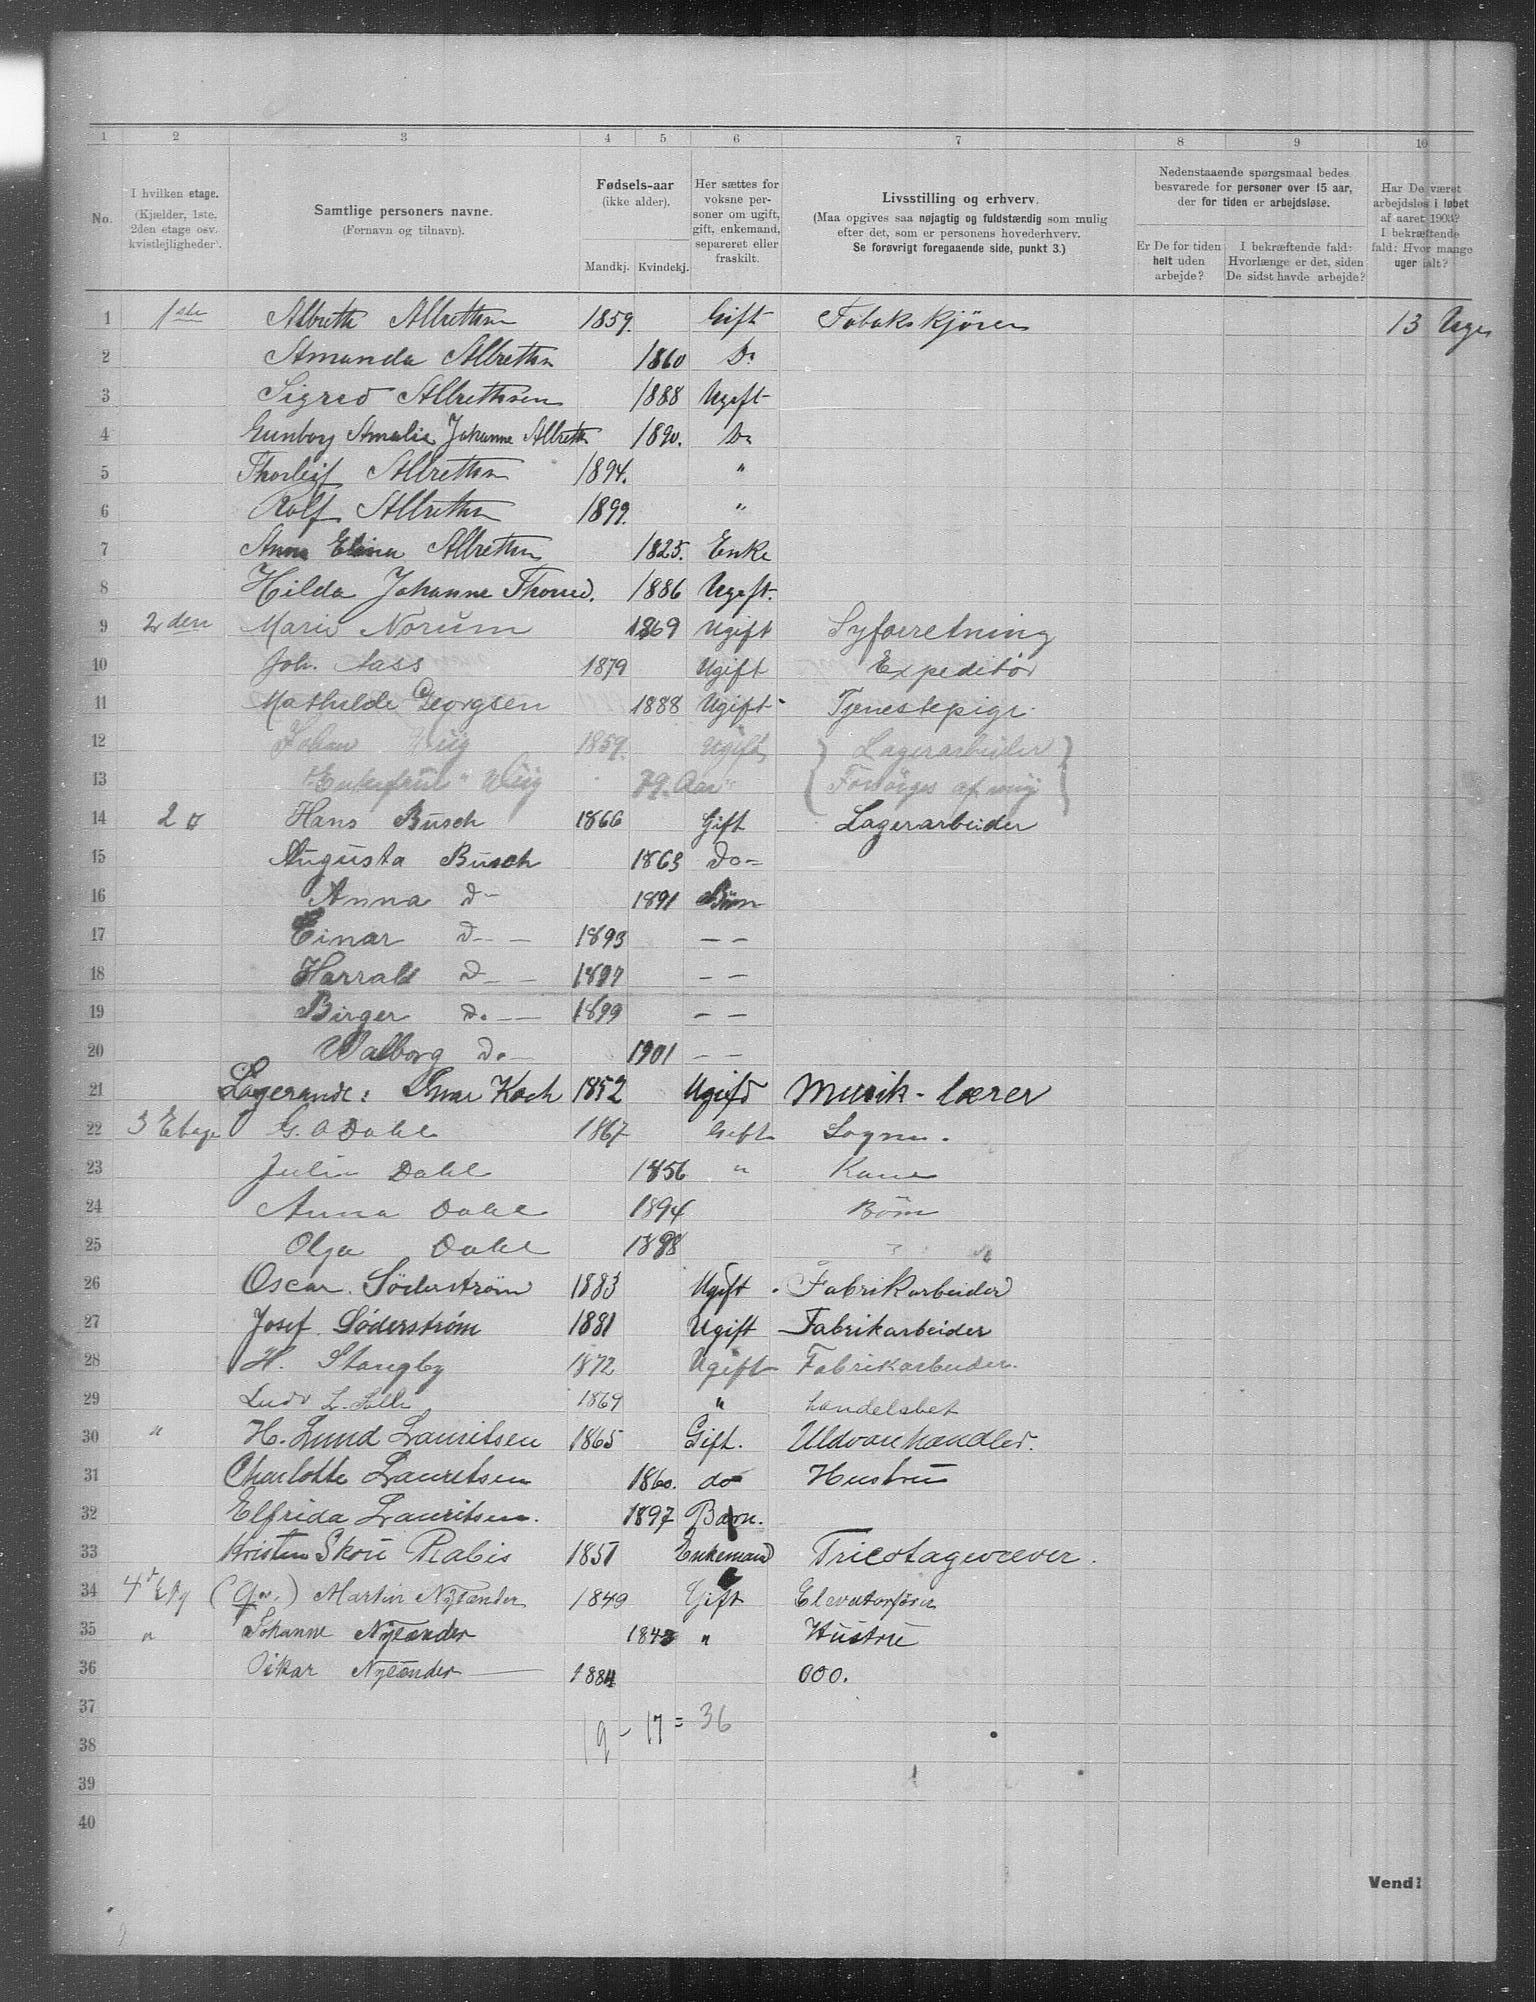 1 2 3 4 5 6 7 8 9 10
No.
I hvilken etage. (Kjælder, 1ste, 2den etage osv. kvistlejligheder).
Samtlige personers navne. (Fornavn og tilnavn).
Fødsels-aar (ikke alder). Mandkj. Kvindekj.
Her sættes for voksne personer om ugift, gift, enkemand, separeret eller fraskilt.
Livsstilling og erhverv. (Maa opgives saa nøjagtig og fuldstændig som mulig efter det, som er personens hovederhverv. Se forøvrigt foregaaende side, punkt 3.)
Nedenstaaende spørgsmaal bedes besvarede for personer over 15 aar, der for tiden er arbejdsløse.
Er De for tiden helt uden arbejde?
I bekræftende fald: Hvorlænge er det, siden De sidst havde arbejde?
Har De været arbejdsløs i løbet af aaret 1903? I bekræftende fald: Hvor mange uger ialt?
1 1ste Albreth Albrethsen 1859. Gift Tobakskjører 13 Uger
2 Amanda Albrethsn 1860 Do
3 Sigred Albrethsen 1888 Ugift
4 Gunborg Amalie Johanne Albreth 1890. Do
5 Thorleif Albrethsn 1894. "
6 Rolf Albrethsn 1899. "
7 Anna Elina Albrethsn 1825. Enke
8 Hilda Johanne 1886 Ugift.
9 2den Marie Norum 1869 Ugift Syforretning
10 Joh. Aass 1879 Ugift Expeditør
11 Mathilde Georgsen 1888 Ugift Tjenestepige
12 Johan Wiig 1859. Ugift Lagerarbeider
13 "Enkefrue" Wiig 79. Aar " Forsørges af mig
14 2 Hans Busch 1866 Gift Lagerarbeider
15 Augusta Busch 1863 Do
16 Anna D 1891 Børn
17 Einar D 1893 — —
18 Harrald D 1897 — —
19 Birger Do 1899 — —
20 Walborg Do 1901 — —
21 Logerande: Koch 1852 Ugift Musik-lærer
22 3 Etage G. A Dahl 1867 Gift
23 Julie Dahl 1856 " Kone
24 Anna Dahl 1894 Børn
25 Olga Dahl 1898
26 Oscar Söderström 1883 Ugift Fabrikarbeider
27 Josef Söderström 1881 Ugift Fabrikarbeider
28 H. Stangby 1872 Ugift Fabrikarbeider
29 Ludv L. 1869 " handelsbet
30 " H. Lund Lauritsen 1865 Gift. Uldvarehandler.
31 Charlotte Lauritsen 1860. do Hustru
32 Elfrida Lauritsen. 1897 Barn.
33 Kristen Skou Rabis 1851 Enkemand Tricotagevæver.
34 4de Etg (Martin Nylander 1849 Gift Elevatorfører
35 " Johanne Nylander 1843 " Hustru
36 Oskar Nylander 1884 000.
37 19 - 17 = 36
38
39
40
Vend!